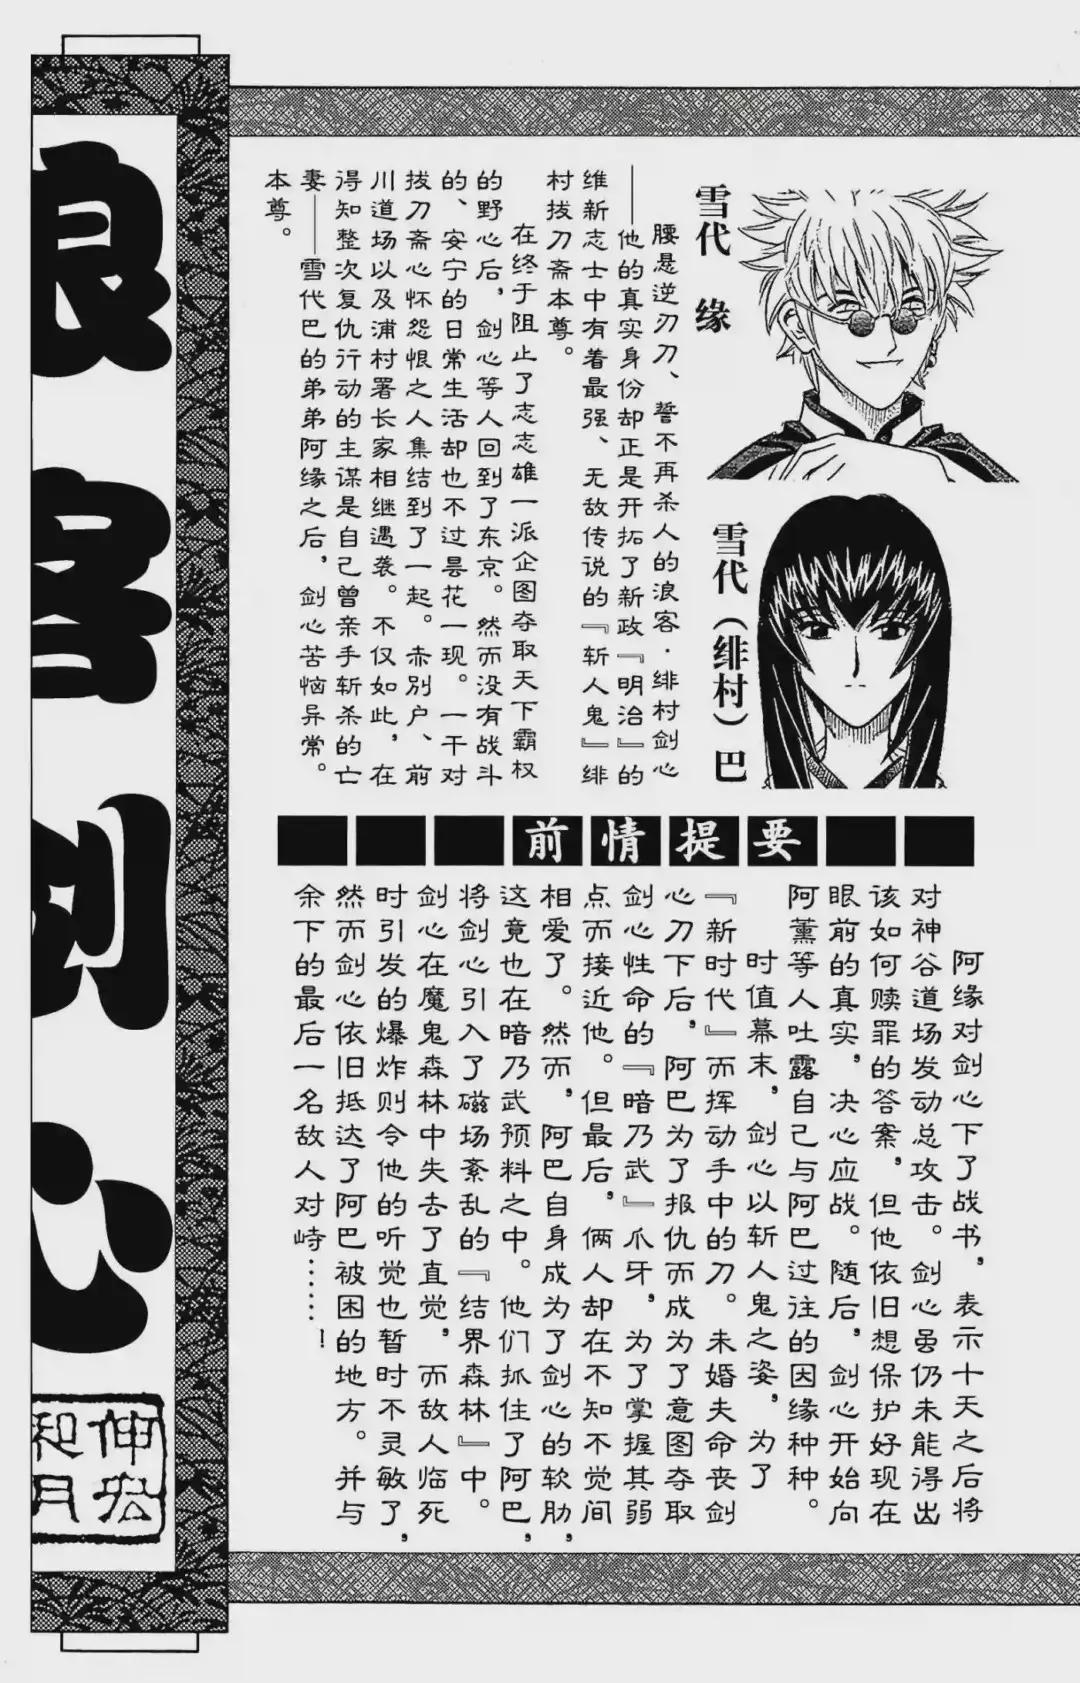 雪代 缘
腰悬逆刃刀、誓不再杀人的浪客·绯村剑心
——他的真实身份却正是开拓了新政『明治』的
维新志士中有着最强、无敌传说的『斩人鬼』绯
村拔刀斋本尊。
在终于阻止了志志雄一派企图夺取天下霸权
的野心后，剑心等人回到了东京。然而没有战斗
的、安宁的日常生活却也不过昙花一现。一干对
拔刀斋心怀怨恨之人集结到了一起。赤别户、前
川道场以及浦村署长家相继遇袭。不仅如此，在
得知整次复仇行动的主谋是自己曾亲手斩杀的亡
妻——雪代巴的弟弟阿缘之后，剑心苦恼异常。
本尊。
雪代（绯村）巴
前情提要
阿缘对剑心下了战书，表示十天之后将
对神谷道场发动总攻击。剑心虽仍未能得出
该如何赎罪的答案，但他依旧想保护好现在
眼前的真实，决心应战。随后，剑心开始向
阿薰等人吐露自己与阿巴过往的因缘种种。
时值幕末，剑心以斩人鬼之姿，为了
『新时代』而挥动手中的刀。未婚夫命丧剑
心刀下后，阿巴为了报仇而成为了意图夺取
剑心性命的『暗乃武』爪牙，为了掌握其弱
点而接近他。但最后，俩人却在不知不觉间
相爱了。然而，阿巴自身成为了剑心的软肋，
这竟也在暗乃武预料之中。他们抓住了阿巴，
将剑心引入了磁场紊乱的『结界森林』中。
剑心在魔鬼森林中失去了直觉，而敌人临死
时引发的爆炸则令他的听觉也暂时不灵敏了，
然而剑心依旧抵达了阿巴被困的地方。并与
余下的最后一名敌人对峙……！
浪客剑心
和月
伸宏